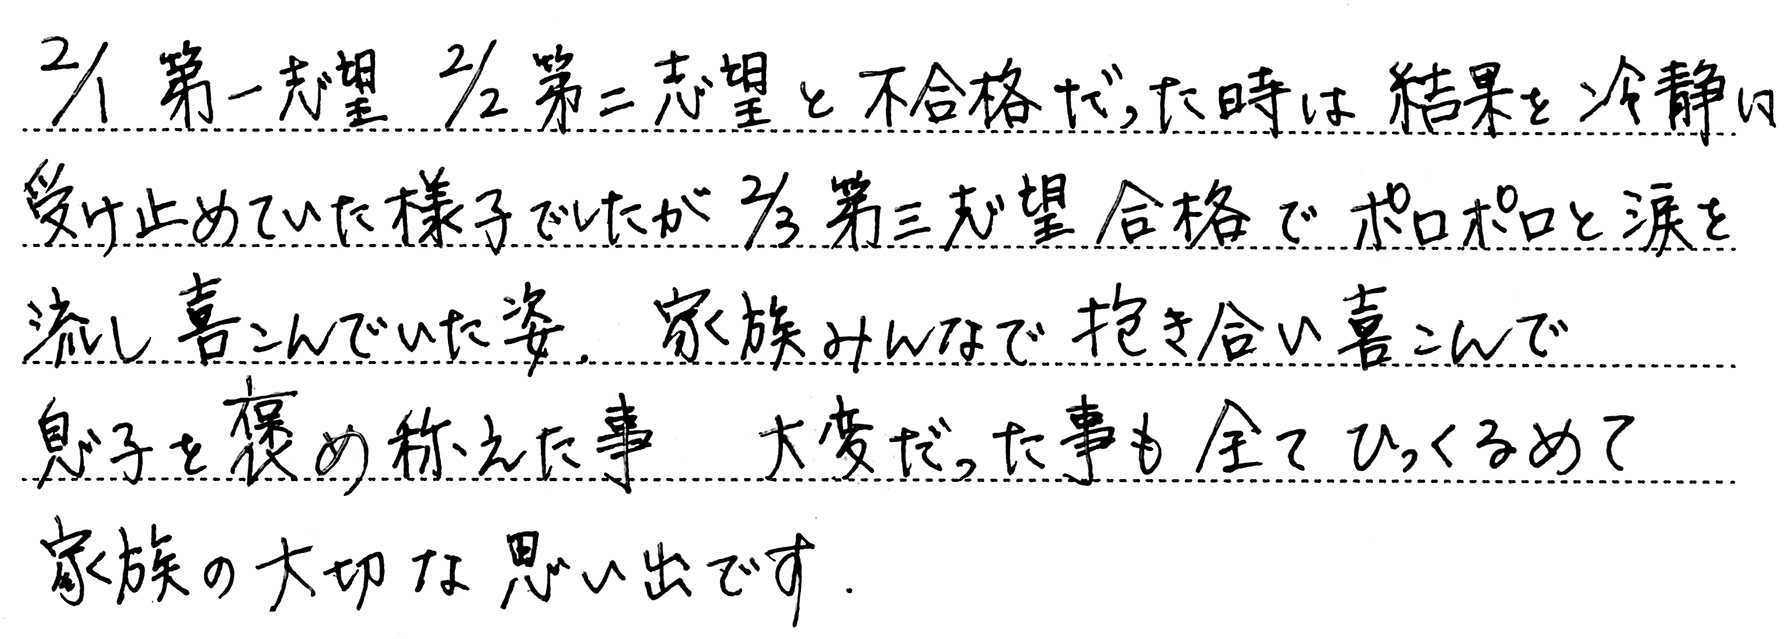 2/1 第一志望 2/2 第二志望と不合格だった時は 結果を 冷静に
受け止めていた様子でしたが 2/3 第三志望 合格で ポロポロと涙を
流し 喜こんでいた姿. 家族みんなで 抱き合い喜こんで
息子を褒め称えた事 大変だった事も 全て ひっくるめて
家族の大切な思い出です.